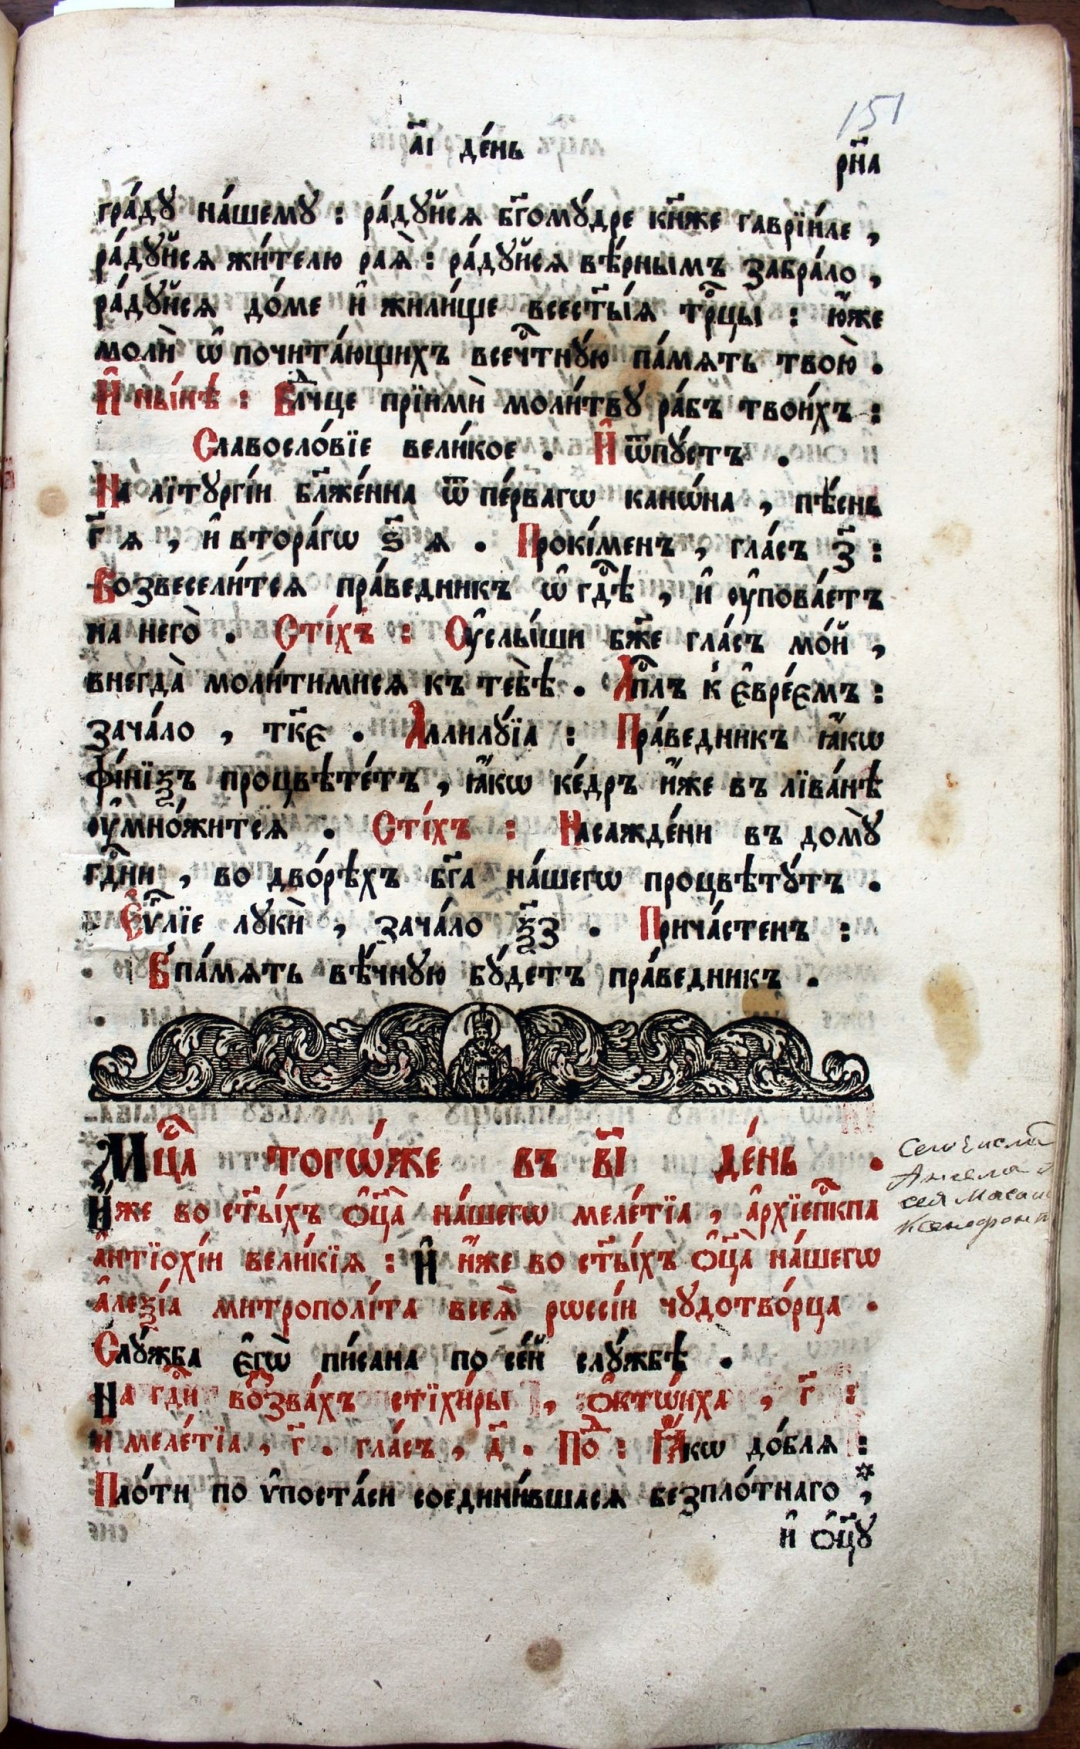 151
а҃і де́нь
рн҃а
гра́дꙋ на́шемꙋ : ра́дꙋйсѧ бг҃омꙋ́дре кн҃же гаврїи́ле ,
ра́дꙋйсѧ жи́телю раѧ̀ : ра́дꙋйсѧ вѣ́рнымъ забра́ло ,
ра́дꙋйсѧ до́ме и҆ жили́ще всест҃ы́ѧ трⷪ҇цы : ю҆́же
молѝ ѡ҆ почита́ющихъ всечⷭ҇тнꙋ́ю па́мѧть твою̀ .
И҆ ны́нѣ : Бⷣгⷣчце прїимѝ моли́твꙋ ра́бъ твои́хъ :
Славосло́вїе вели́кое . И҆ ѿпꙋ́стъ .
На лїтꙋргі́и бл҃же́нна ѿ пе́рвагѡ кано́на , пѣ́снь
г҃ ѧ , и҆ втора́гѡ ѕ҃ ѧ . Проки́менъ , гла́съ з҃ :
Возвесели́тсѧ пра́ведникъ ѡ҆ гдⷭ҇ѣ , и҆ ᲂу҆пова́етъ
на него̀ . Сті́хъ : Оу҆слы́ши бж҃е гла́съ мо́й ,
внегда̀ моли́тимисѧ къ тебѣ̀ . А҆пⷭ҇лъ к̾ є҆вре́ємъ :
зача́ло , тк҃є . Аллилꙋ́їа : Пра́ведникъ ꙗ҆́кѡ
фі́нїѯъ процвѣте́тъ , ꙗ҆́кѡ ке́дръ и҆́же въ лїва́нѣ
ᲂу҆мно́житсѧ . Сті́хъ : Насажде́ни въ домꙋ̀
гдⷭ҇ни , во дво́рѣхъ бг҃а на́шегѡ процвѣтꙋ́тъ .
Є҆ѵⷢ҇лїе лꙋкѝ , зача́ло ѯ҃з . Прича́стенъ :
В̾па́мѧть вѣ́чнꙋю бꙋ́детъ пра́ведникъ .
Мцⷭ҇а тогѡ́же въ в҃і де́нь .
И҆́же во ст҃ы́хъ ѻ҆ц҃а̀ на́шегѡ меле́тїа , а҆рхїепⷭ҇кпа
а҆нтїохі́и вели́кїѧ : И҆ и҆́же во ст҃ы́хъ ѻ҆ц҃а̀ на́шегѡ
а҆леѯі́а митрополі́та всеѧ̀ рѡссі́и чꙋдотво́рца .
Слꙋ́жба є҆гѡ̀ пи́сана по се́й слꙋ́жбѣ .
На гдⷭ҇и воⷥзва́хъ стїхи́ры , ѻ҆ктѡ́иха , г҃ :
и҆ меле́тїа , г҃ . гла́съ , д҃ . Поⷣ : Ꙗ҆́кѡ до́блѧ :
Пло́ти по ѵ҆поста́си соедини́вшасѧ безпло́тнаго ,
и҆ ѻ҆ц҃ꙋ̀